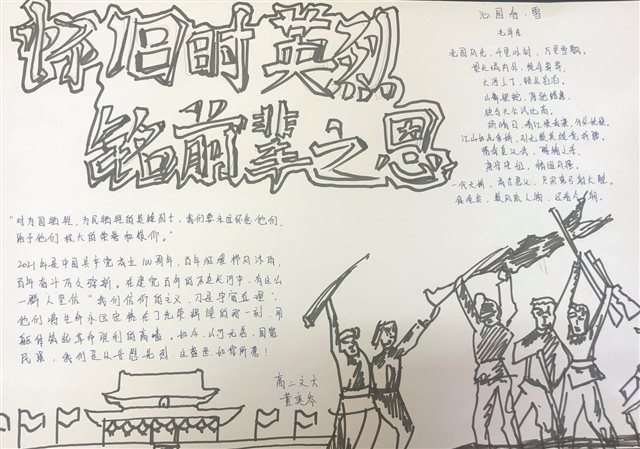 怀旧时英烈
铭前辈之恩
沁园春·雪
毛泽东
北国风光，千里冰封，万里雪飘。
望长城内外，惟余莽莽，
大河上下，顿失滔滔。
山舞银蛇，原驰蜡象，
欲与天公试比高。
须晴日，看红装素裹，分外妖娆。
江山如此多娇，引无数英雄竞折腰。
惜秦皇汉武，略输文采，
唐宗宋祖，稍逊风骚。
一代天骄，成吉思汗，只识弯弓射大雕。
俱往矣，数风流人物，还看今朝。
"对为国牺牲，为民牺牲的英雄烈士，我们要永远怀念他们，
给予他们极大的荣誉和敬仰。"
2021年是中国共产党成立100周年，百年征程栉风沐雨，
百年奋斗历久弥新。在建党百年的历史长河中，有这么
一群人坚信"我们信仰的主义，乃是宇宙真理"；
他们将生命永远定格在了光荣辉煌的那一刻，用
躯体筑起革命胜利的高墙。如今，山河无恙，国富
民强，我们足以告慰先烈，这盛世如你所愿！
高二文六